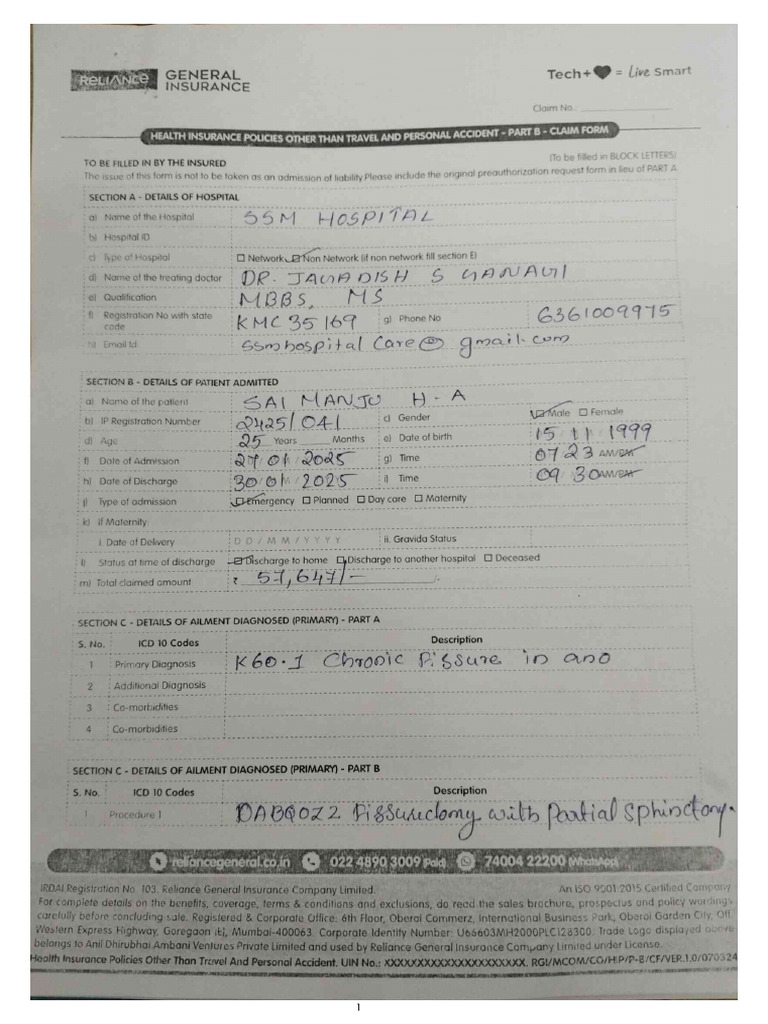 RELIANCE GENERAL INSURANCE
Tech+ = Live Smart
Claim No.
HEALTH INSURANCE POLICIES OTHER THAN TRAVEL AND PERSONAL ACCIDENT - PART B - CLAIM FORM
TO BE FILLED IN BY THE INSURED (To be filled in BLOCK LETTERS)
The issue of this form is not to be taken as an admission of liability Please include the original preauthorization request form in lieu of PART A
SECTION A - DETAILS OF HOSPITAL
a) Name of the Hospital SSM HOSPITAL
b) Hospital ID
c) Type of Hospital Network Non Network (if non network fill section E)
d) Name of the treating doctor DR. JAGADISH S GANAGI
e) Qualification MBBS, MS
f) Registration No with state code KMC 35169 g) Phone No 6361009975
h) Email Id ssmhospital care@gmail.com
SECTION B - DETAILS OF PATIENT ADMITTED
a) Name of the patient SAI MANJU H-A
b) IP Registration Number 2425/041 c) Gender Male Female
d) Age 25 Years Months e) Date of birth 15 11 1999
f) Date of Admission 27 01 2025 g) Time 07 23 AM/PM
h) Date of Discharge 30 01 2025 i) Time 09 30 AM/PM
j) Type of admission Emergency Planned Day care Maternity
k) If Maternity
i. Date of Delivery DD/MM/YYYY ii. Gravida Status
l) Status at time of discharge Discharge to home Discharge to another hospital Deceased
m) Total claimed amount ₹ 57,647/-
SECTION C - DETAILS OF AILMENT DIAGNOSED (PRIMARY) - PART A
S. No. ICD 10 Codes Description
1 Primary Diagnosis K60.1 Chronic Fissure in ano
2 Additional Diagnosis
3 Co-morbidities
4 Co-morbidities
SECTION C - DETAILS OF AILMENT DIAGNOSED (PRIMARY) - PART B
S. No. ICD 10 Codes Description
1 Procedure 1 0DBQ0ZZ Fissurectomy with Partial Sphinctory.
reliancegeneral.co.in 022 4890 3009 (Paid) 74004 22200 (WhatsApp)
IRDAI Registration No. 103. Reliance General Insurance Company Limited. An ISO 9001:2015 Certified Company
For complete details on the benefits, coverage, terms & conditions and exclusions, do read the sales brochure, prospectus and policy wordings
carefully before concluding sale. Registered & Corporate Office: 6th Floor, Oberoi Commerz, International Business Park, Oberoi Garden City, Off.
Western Express Highway, Goregaon (E), Mumbai-400063. Corporate Identity Number: U66603MH2000PLC128300. Trade Logo displayed above
belongs to Anil Dhirubhai Ambani Ventures Private Limited and used by Reliance General Insurance Company Limited under License.
Health Insurance Policies Other Than Travel And Personal Accident. UIN No.: XXXXXXXXXXXXXXXXXXXXXXX. RGI/MCOM/CO/HIP/P-B/CF/VER.1.0/070324
1